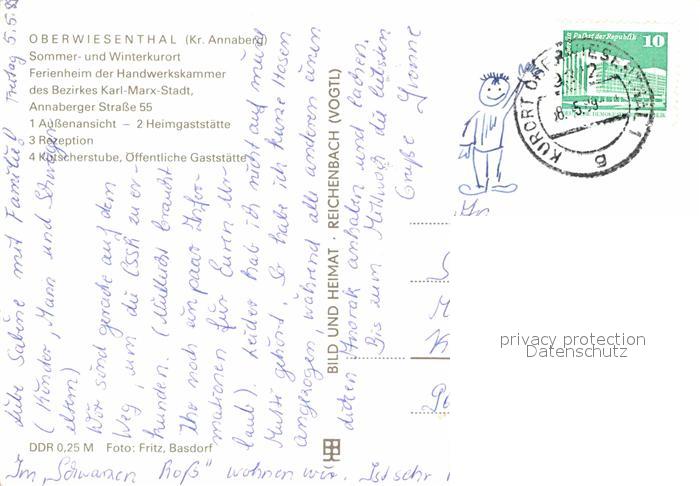 OBERWIESENTHAL (Kr. Annaberg)
Sommer- und Winterkurort
Ferienheim der Handwerkskammer
des Bezirkes Karl-Marx-Stadt,
Annaberger Straße 55
1 Außenansicht – 2 Heimgaststätte
3 Rezeption
4 Kutscherstube, Öffentliche Gaststätte
Freitag 5.5.
Liebe Sabine mit Familie!
(Kinder, Mann und Schwieger-
eltern)
Wir sind gerade auf dem
Weg, um die ČSSR zu er-
kunden. (Vielleicht braucht
Ihr noch ein paar Infor-
mationen für Euren Ur-
laub). Leider hab ich nicht auf meine
Mutti gehört. So habe ich kurze Hosen
angezogen, während alle anderen einen
dicken Anorak anhaben und lachen.
Bis zum Mittwoch die liebsten
Grüße Yvonne
Im "Schwarzen Roß" wohnen wir. Ist sehr
DDR 0,25 M Foto: Fritz, Basdorf
BILD UND HEIMAT · REICHENBACH (VOGTL)
Palast der Republik
10
KURORT OBERWIESENTHAL 1
privacy protection
Datenschutz